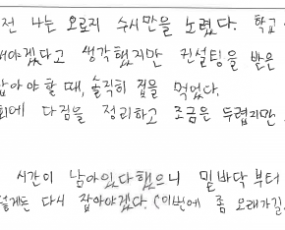 전 나는 오로지 수시만을 노렸다. 학교
해야겠다고 생각했지만 컨설팅을 받은
잡아야 할 때, 솔직히 겁을 먹었다.
다짐을 정리하고 조금은 두렵지만
시간이 남아있다했으니 밑바닥부터
다시 잡아야겠다. (이번에 좀 오래가길